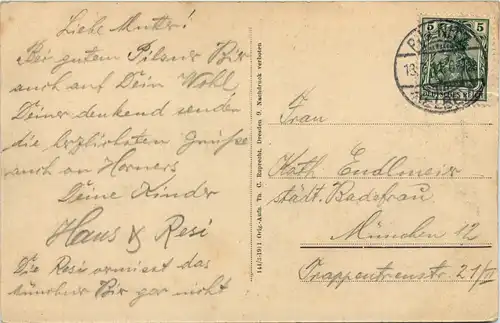 Liebe Mutter!
Bei gutem Pilsner Bir
auch auf Dein Wohl,
Deiner denkend senden
die herzlichsten Grüße
auch an Horners
Deine Kinder
Hans & Resi
Die Resi das
Bir gar nicht
144/3-1911 Orig.-Aufn. Th. C. Ruprecht, Dresden 9. Nachdruck verboten
5 5
13.
Frau
Kath Endlmeier
städt. Badefrau
München 12
Trappentreustr. 21/II